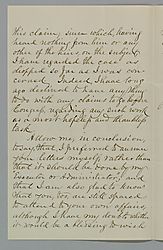 this claim, since which, having
heard nothing from him or any
other of the heirs, on the subject,
I have regarded the case as
dropped so far as I was con-
cerned. Indeed I have long
ago declined to have anything
to do with any claims before
Congress, regarding any such work
as a most hopeless and thankless
task.
Allow me, in conclusion,
to say, that I preferred to answer
your letter myself, rather than
that it should be done by my
Executor or Administrator; and
that I am also glad to know
that you, too, are still spared
to attend to your own affairs,
although I have my doubts whether
it would be a blessing to wish